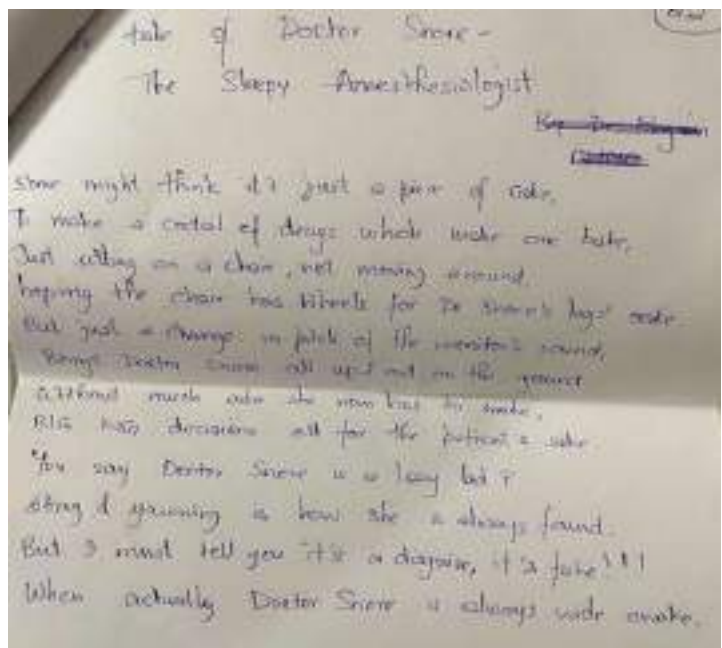 tale of Doctor Snore -
The Sleepy Anesthesiologist
some might think it's just a piece of cake,
To make a coctal of drugs which make one bake,
Just sitting on a chair, not moving around,
hoping the chair has wheels for Dr Snore's legs'
But just a change in pitch of the monitor's sound,
Brings Doctor Snore all up & out on the ground
without much ado she now has to make,
Big decisions all for the patient's sake
You say Doctor Snore is a lazy
& yawning is how she is always found.
But I must tell you it's a disguise, it's fake!!!
When actually Doctor Snore is always wide awake.